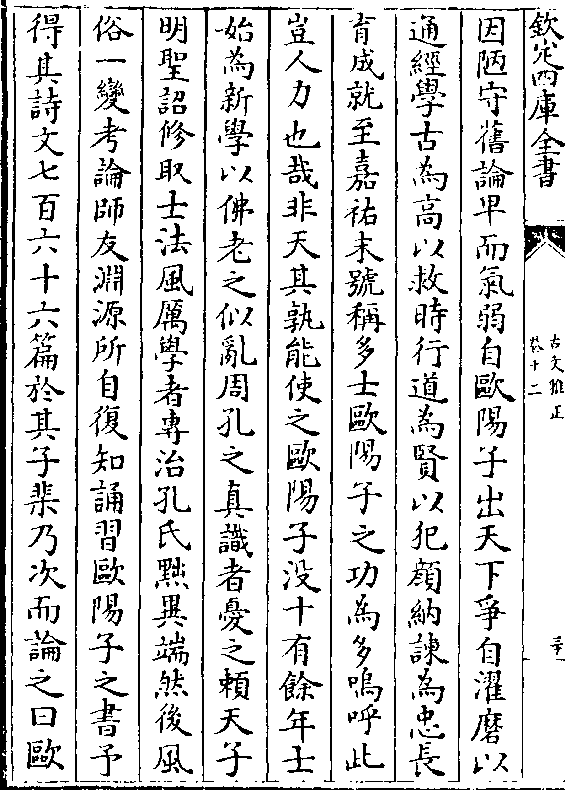 欽定四庫全書
古文雅正
卷十二
因陋守舊論卑而氣弱自歐陽子出天下爭自濯磨以
通經學古為高以救時行道為賢以犯顔納諫為忠長
育成就至嘉祐末號稱多士歐陽子之功為多嗚呼此
豈人力也哉非天其孰能使之歐陽子没十有餘年士
始為新學以佛老之似亂周孔之真識者憂之頼天子
明聖詔修取士法風厲學者專治孔氏黜異端然後風
俗一變考論師友淵源所自復知誦習歐陽子之書予
得其詩文七百六十六篇於其子棐乃次而論之曰歐